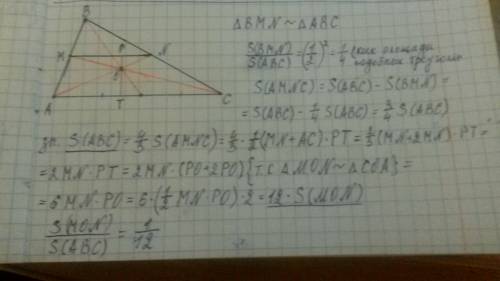 B
M P N
O
A T C
ΔBMN ~ ΔABC
S(BMN)/S(ABC) = (1/2)² = 1/4 (как площади
подобных треугольн.
S(AMNC) = S(ABC) - S(BMN) =
= S(ABC) - 1/4 S(ABC) = 3/4 S(ABC)
S(ABC) = 4/3 S(AMNC) = 4/3 · 1/2 (MN + AC) · PT = 2/3 (MN + 2MN) · PT =
= 2MN · PT = 2MN · (PO + 2PO) {т.с ΔMON ~ ΔCOA} =
= 6 MN · PO = 6 · (1/2 MN · PO) · 2 = 12 · S(MON)
S(MON)/S(ABC) = 1/12